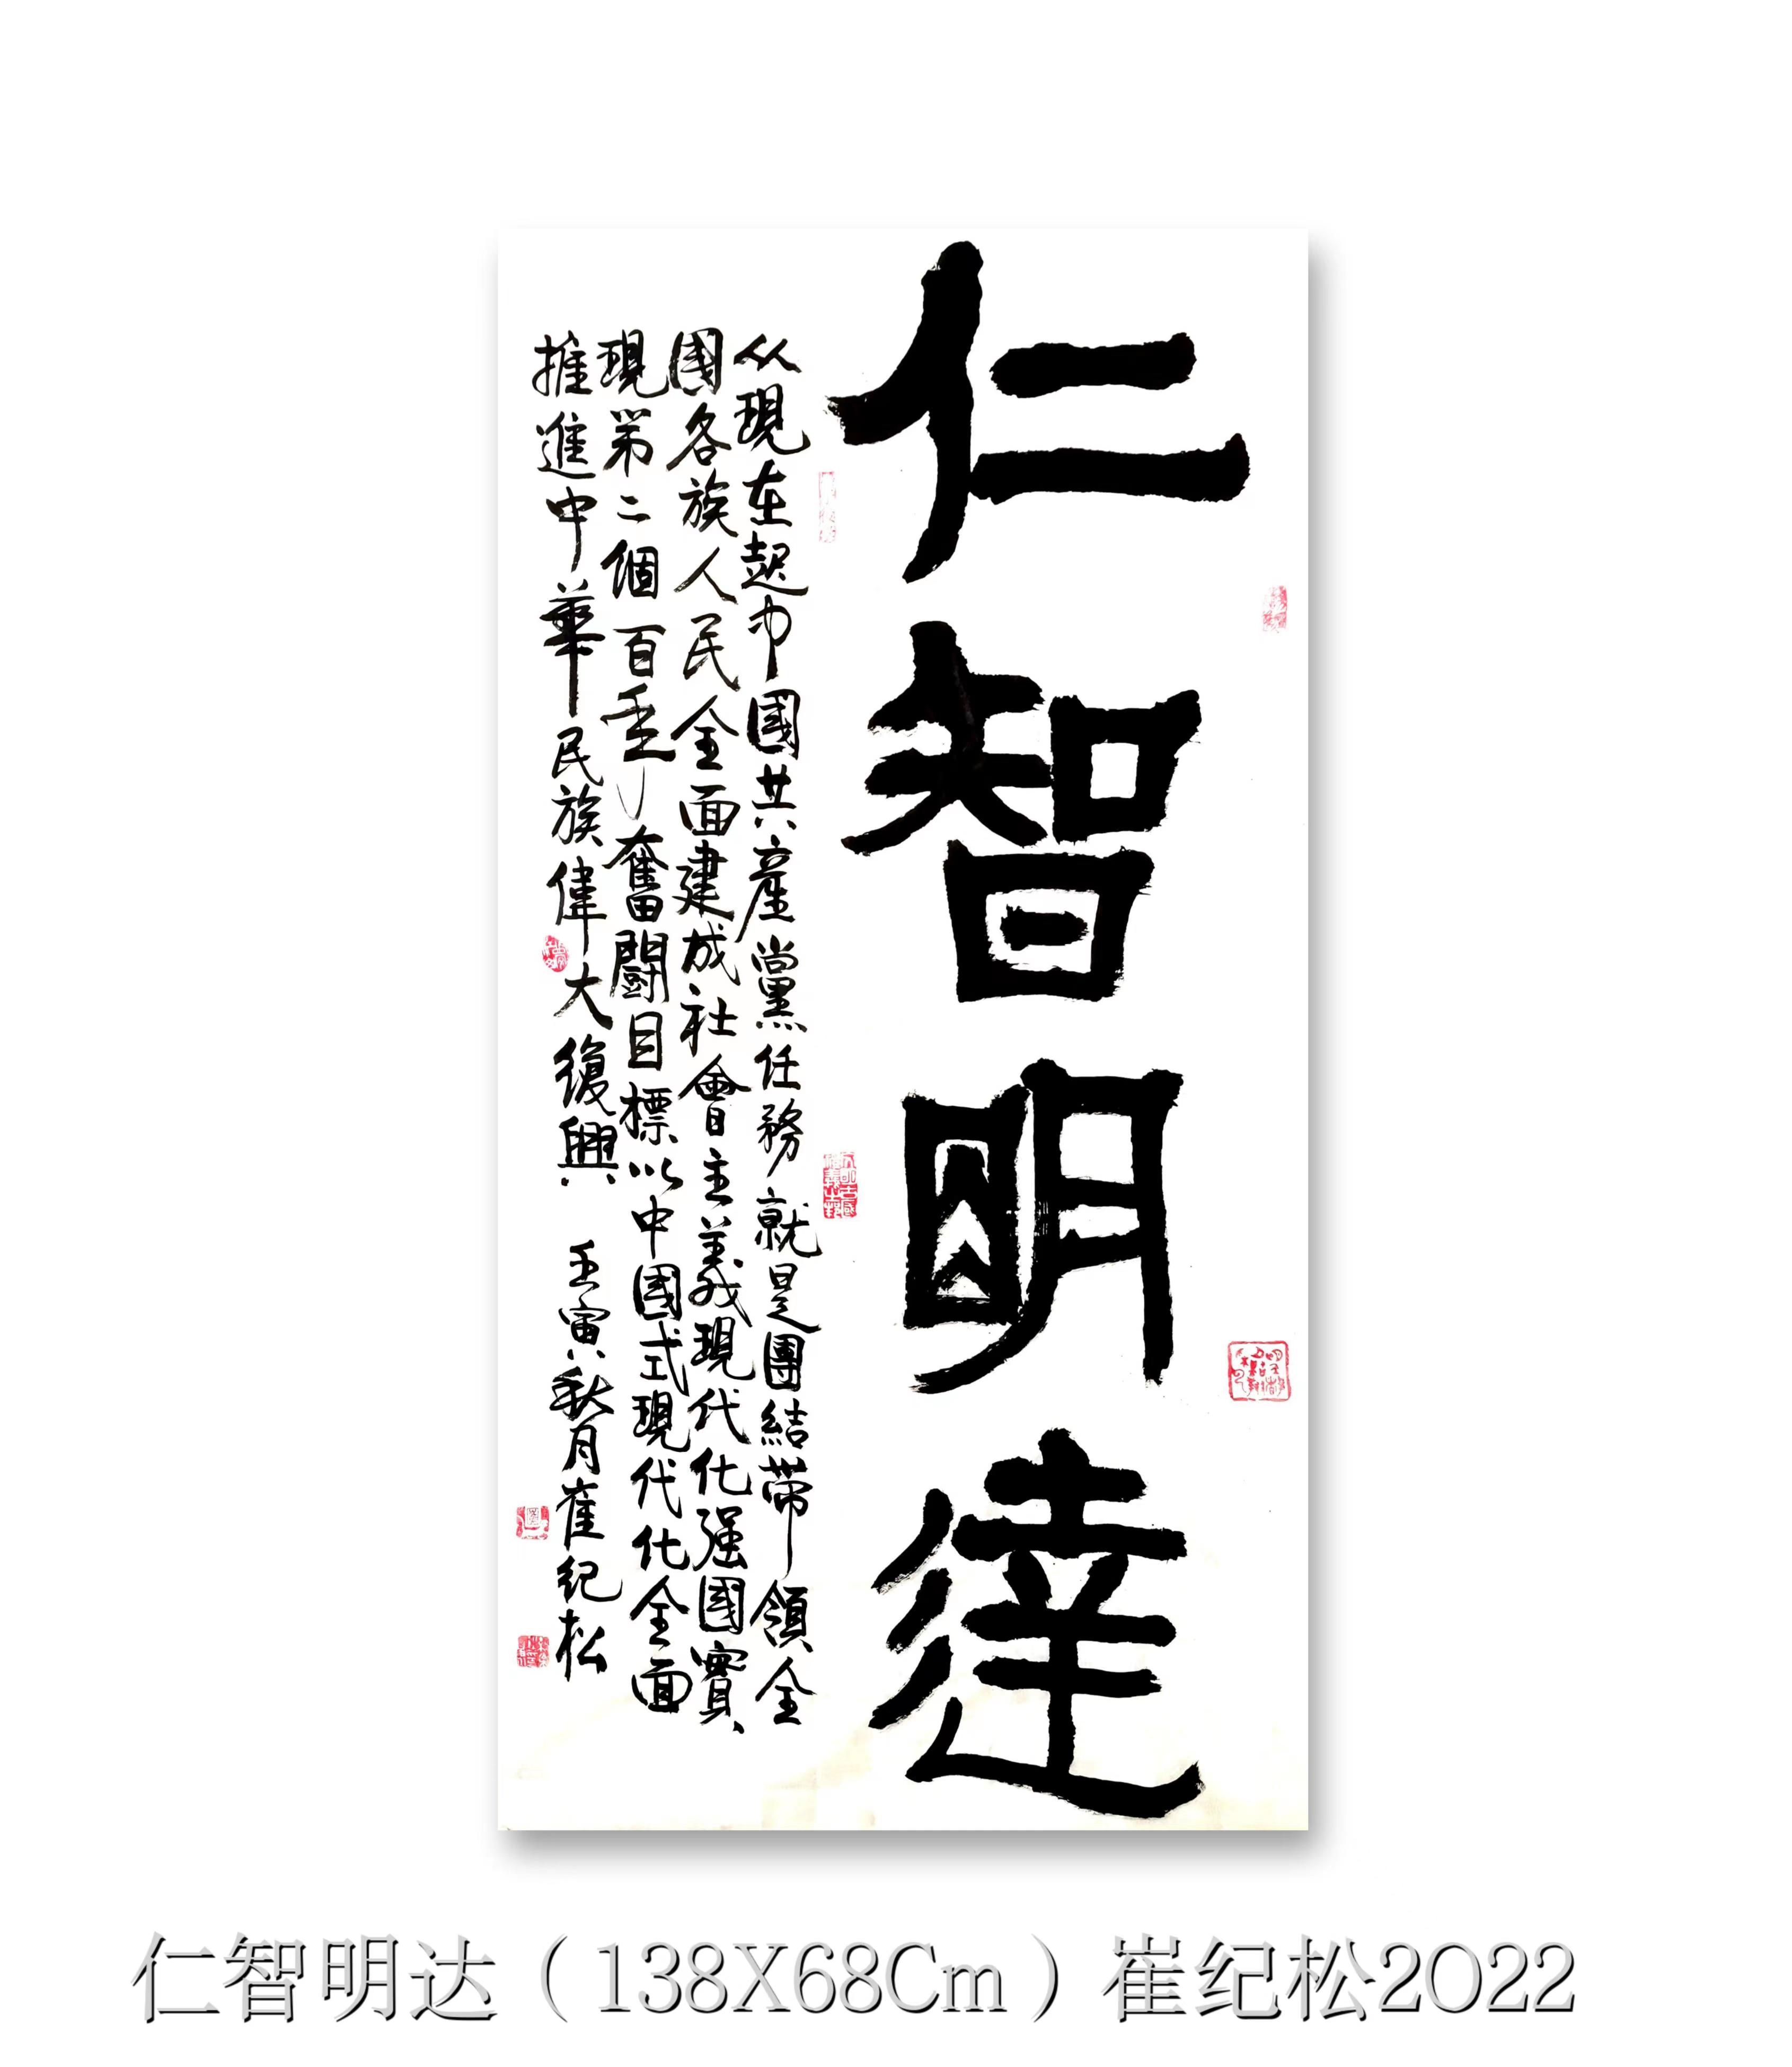 仁智明達
从現在起中國共産黨任務就是團結帶領全
國各族人民全面建成社會主義現代化强國實
現第二個百年奮鬭目標以中國式現代化全面
推進中華民族偉大復興 壬寅秋月崔纪松
仁智明达（138X68Cm）崔纪松2022